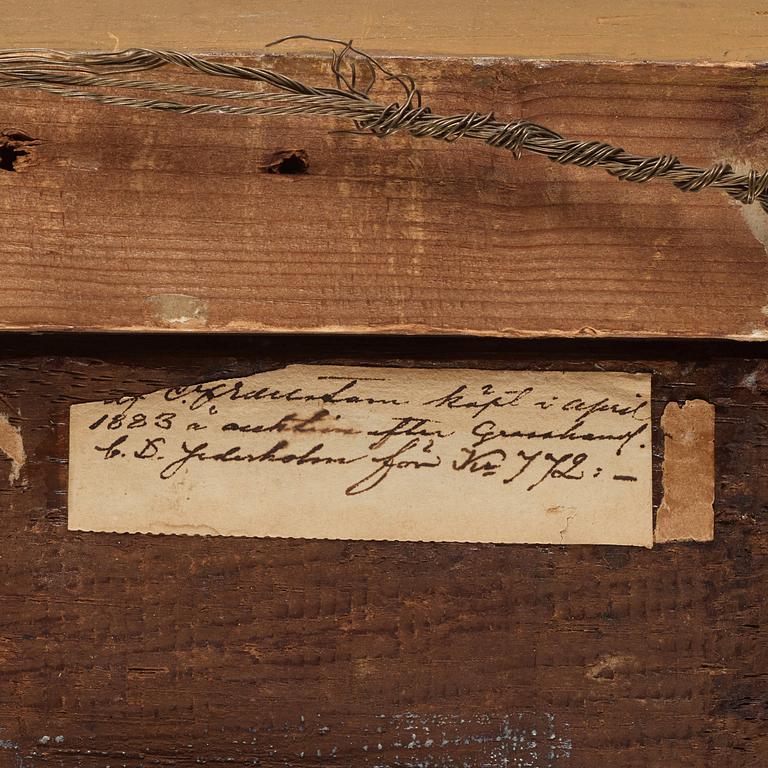 af köpt i april
1883 å auktion efter Grosshand.
C. D. Jederholm för Kr 772:-